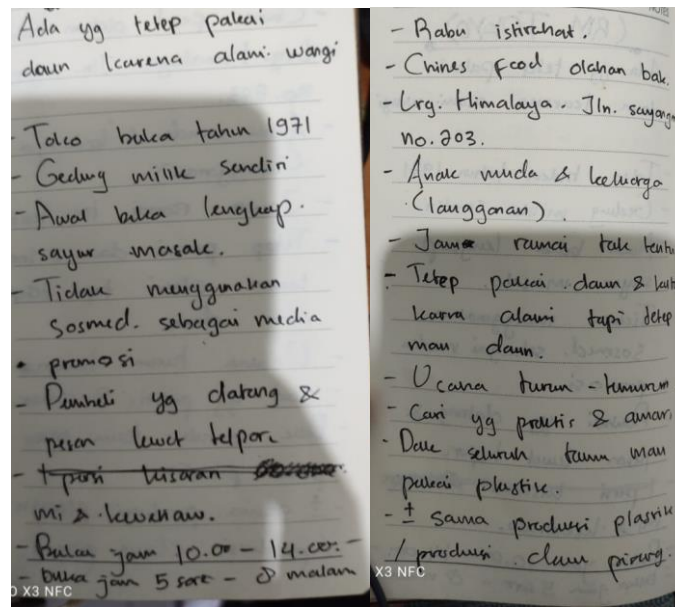 Ada yg tetep pakai
daun karena alami. wangi
- Toko buka tahun 1971
- Gedung milik sendiri
- Awal buka lengkap.
sayur masak.
- Tidak menggunakan
sosmed. sebagai media
• promosi
- Pembeli yg datang &
pesan lewat telpon.
mi &
- Buka jam 10.00 - 14.00. -
- buka jam 5 sore - 8 malam
X3 NFC
- Rabu istirahat.
- Chines food olahan bak.
- Lrg. Himalaya. Jln. sayang
no. 203.
- Anak muda & keluarga
(langganan)
- Jam ramai tak tentu
- Tetep pakai daun &
karna alami tapi tetep
mau daun.
- Usaha turun-temurun
- Cari yg praktis & aman
- Dak seluruh mau
pakai plastik.
- ± sama produksi plastik
/ produksi daun pisang.
X3 NFC